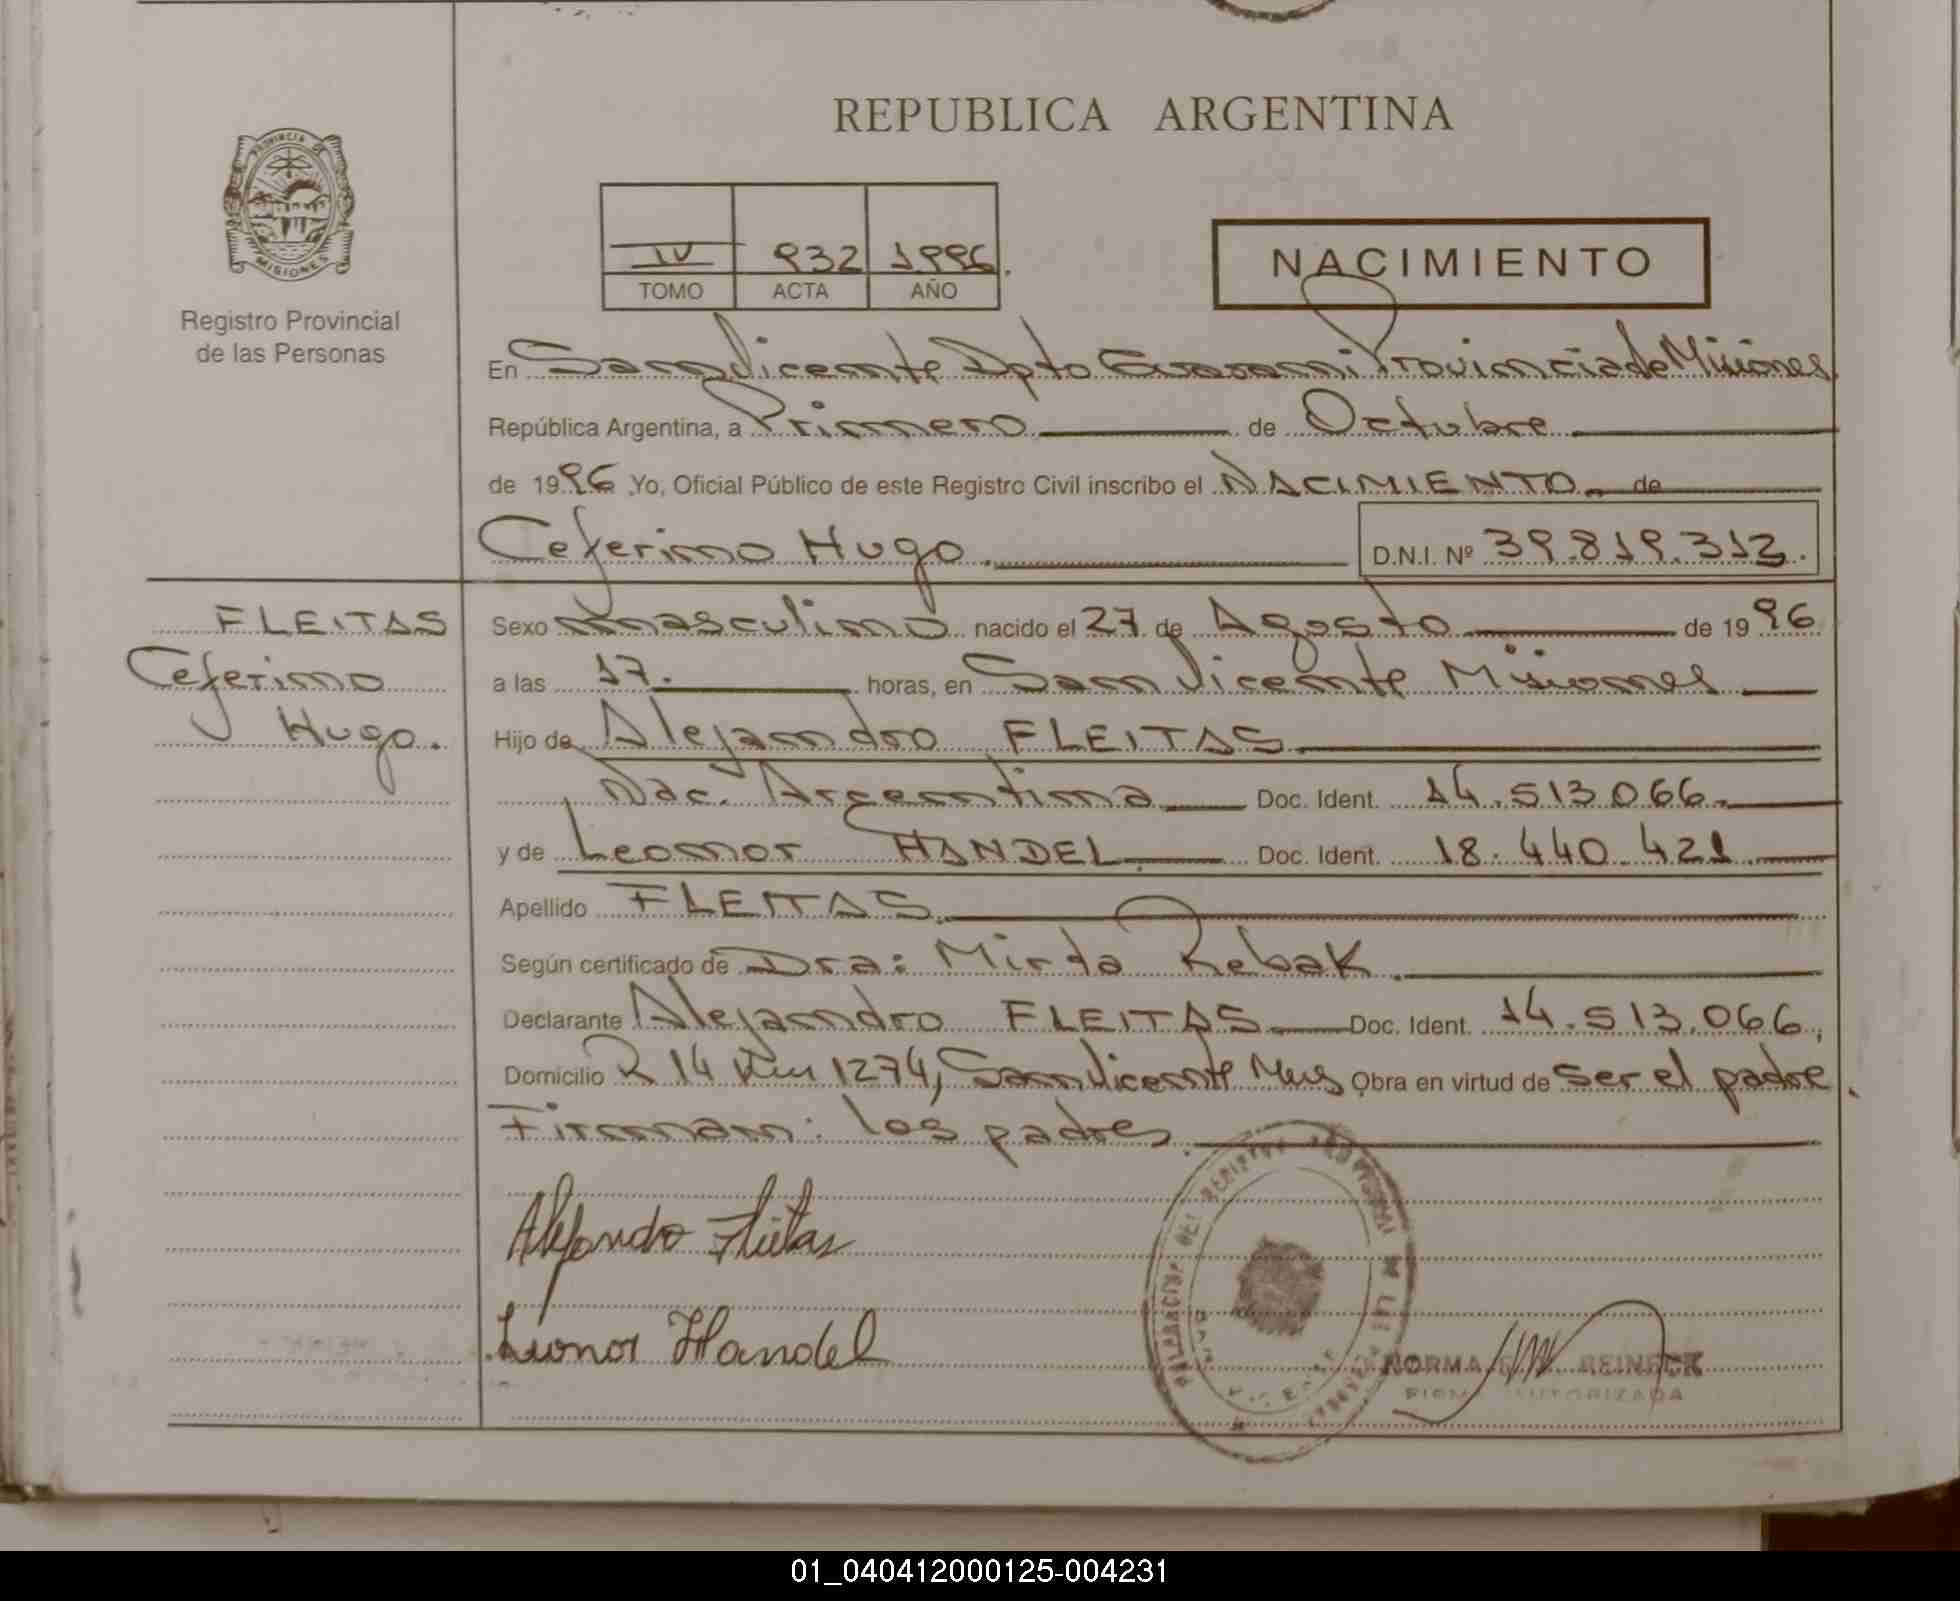 REPUBLICA ARGENTINA
PROVINCIA DE
MISIONES
Registro Provincial
de las Personas
IV 932 1996.
TOMO ACTA AÑO
NACIMIENTO
En San Vicente Dpto Guarani Provincia de Misiones
República Argentina, a Primero de Octubre
de 1996 Yo, Oficial Público de este Registro Civil inscribo el NACIMIENTO de
Ceferino Hugo. D.N.I. Nº 39.819.312.
FLEITAS
Ceferino
Hugo.
Sexo masculino nacido el 27 de Agosto de 1996
a las 17. horas, en San Vicente Misiones
Hijo de Alejandro FLEITAS
Nac. Argentina Doc. Ident. 14.513.066.
y de Leonor HANDEL Doc. Ident. 18.440.421
Apellido FLEITAS.
Según certificado de Dra: Mirta Rebak.
Declarante Alejandro FLEITAS Doc. Ident. 14.513.066,
Domicilio R 14 Km 1274, San Vicente Mnes Obra en virtud de ser el padre.
Firman: los padres.
Alejandro Fleitas
Leonor Handel
NORMA REINECK
FIRMA AUTORIZADA
01_040412000125-004231